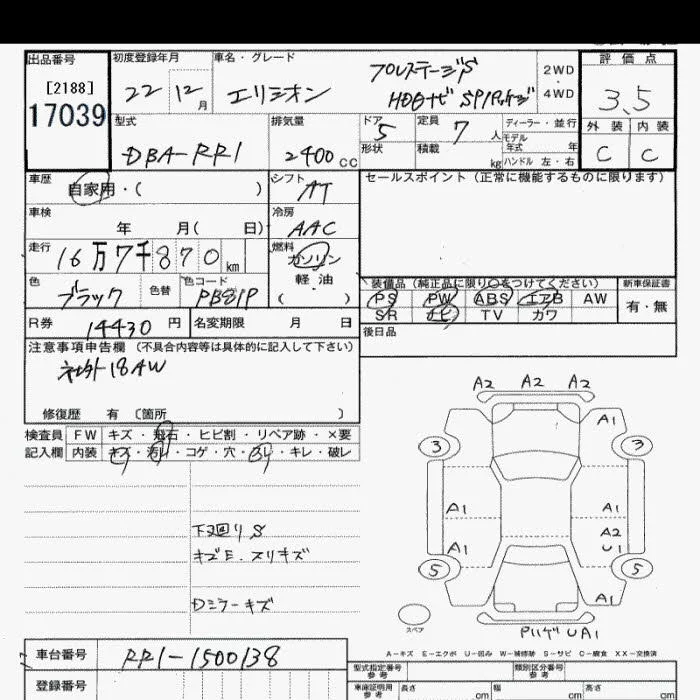 出品番号 初度登録年月 車名・グレード プレステージS 2WD 評価点
[2188] 22 12月 エリシオン HDDナビ SPパッケージ ・4WD 3.5
17039
型式 排気量 ドア 5 定員 7人 ディーラー・並行 外装 内装
DBA-RR1 2400cc 形状 積載 kg モデル年式 年 C C
ハンドル 左・右
車歴 自家用・( ) シフト AT セールスポイント (正常に機能するものに限ります)
車検 年 月( 日) 冷房 AAC
走行 16万7千870km 燃料 ガソリン
軽油
( )
色 ブラック 色替 色コード PB81P
装備品 (純正品に限り○をつけてください) 新車保証書
PS PW ABS エアB AW 有・無
SR ナビ TV カワ
R券 14430円 名変期限 月 日 後日品
注意事項申告欄 (不具合内容等は具体的に記入して下さい)
社外18AW
修復歴 有 (箇所 )
検査員 FW キズ・飛石・ヒビ割・リペア跡・×要
記入欄 内装 キズ・汚レ・コゲ・穴・スレ・キレ・破レ
A2 A2 A2
A1
3 3
A1 A1
A2
A1 U1
5 5
A1
スペア
下廻りS
キズE・スリキズ
Dミラーキズ
UA1
A-キズ E-エクボ U-凹み W-補修跡 S-サビ C-腐食 XX-交換済
車台番号 RR1-1500138
登録番号
型式指定番号 参考 類別区分番号 参考
車庫証明用 参考 長さ cm 幅 cm 高さ cm